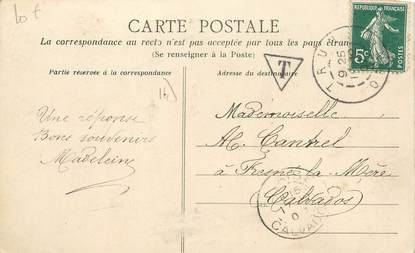 CARTE POSTALE
La correspondance au recto n'est pas acceptée par tous les pays étran
(Se renseigner à la Poste)
Partie réservée à la correspondance
Adresse du destinataire
RÉPUBLIQUE FRANÇAISE
5c
T
TRUN
19 25
Une réponse
Bons souvenirs
Madeleine
Mademoiselle
M. Cantrel
à Fresné la Mère
Calvados
CALVADOS